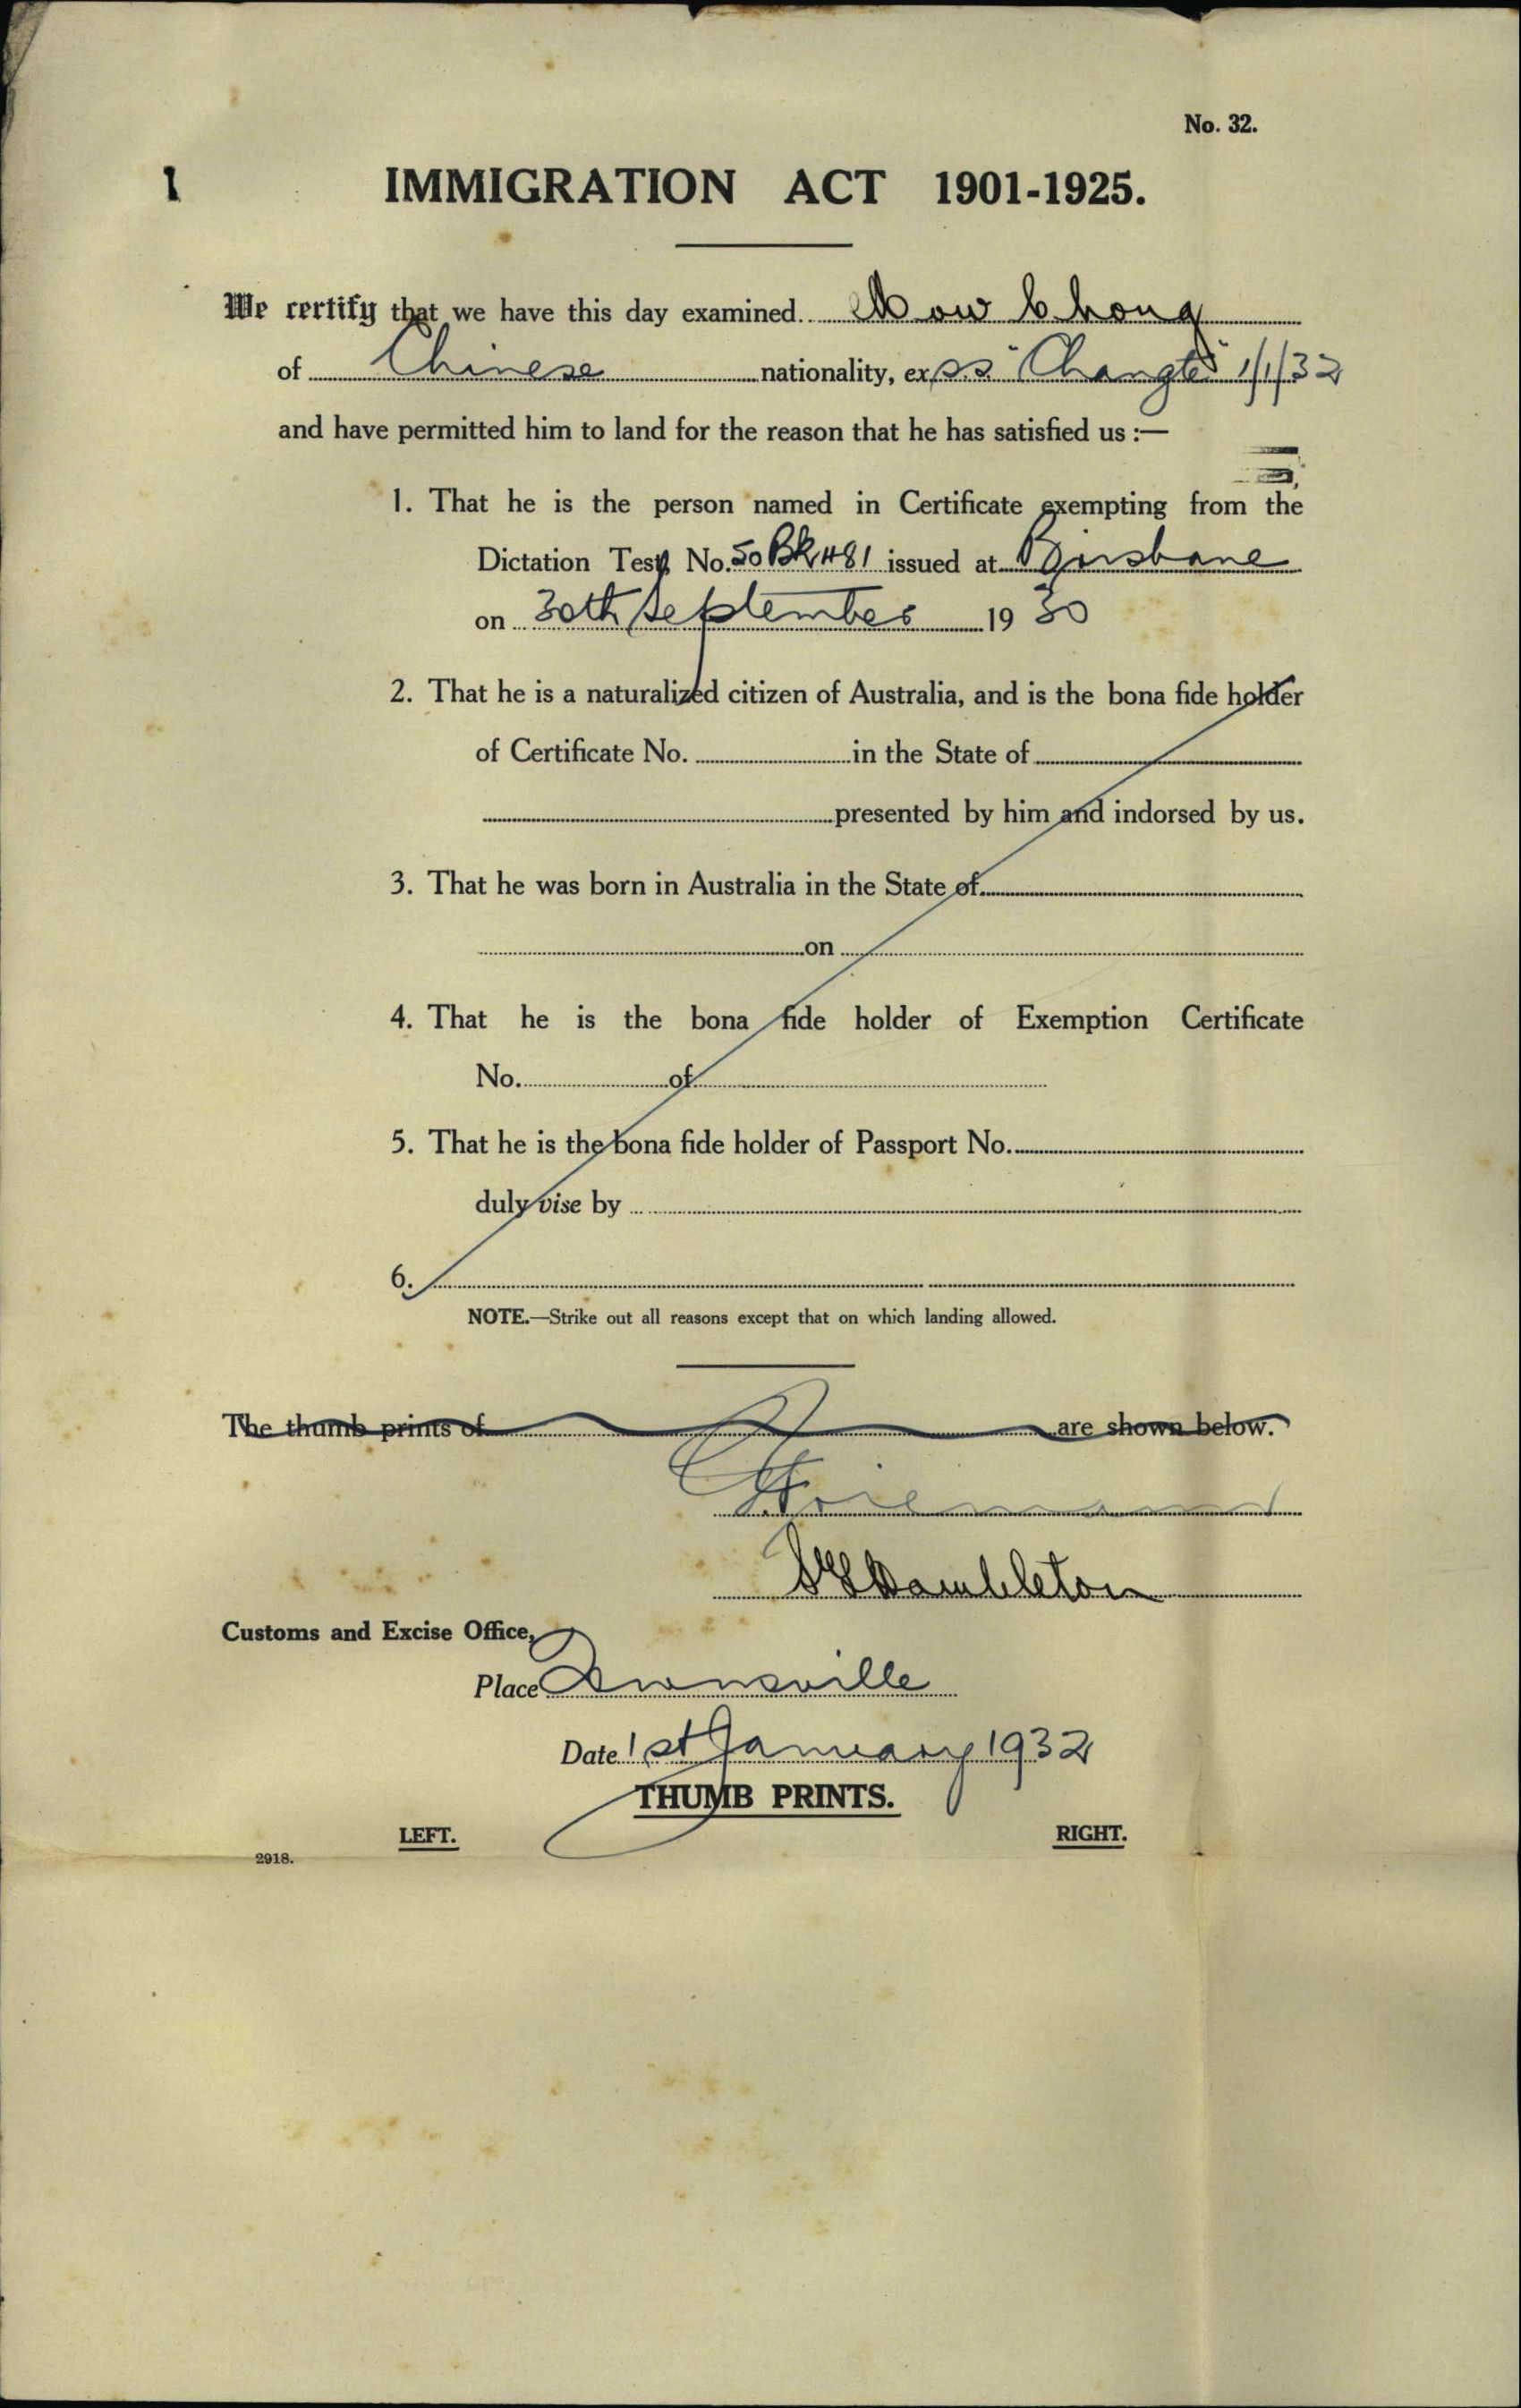 No. 32.
1
IMMIGRATION ACT 1901-1925.
We certify that we have this day examined Mow Chong
of Chinese nationality, ex S.S "Changte" 1/1/32
and have permitted him to land for the reason that he has satisfied us :—
1. That he is the person named in Certificate exempting from the
Dictation Test No. 50 BK 481 issued at Brisbane
on 30th September 1930
2. That he is a naturalized citizen of Australia, and is the bona fide holder
of Certificate No. in the State of
presented by him and indorsed by us.
3. That he was born in Australia in the State of
on
4. That he is the bona fide holder of Exemption Certificate
No. of
5. That he is the bona fide holder of Passport No.
duly vise by
6.
NOTE.—Strike out all reasons except that on which landing allowed.
The thumb prints of are shown below.
Hambleton
Customs and Excise Office,
Place Townsville
Date 1st January 1932
THUMB PRINTS.
LEFT. RIGHT.
2918.